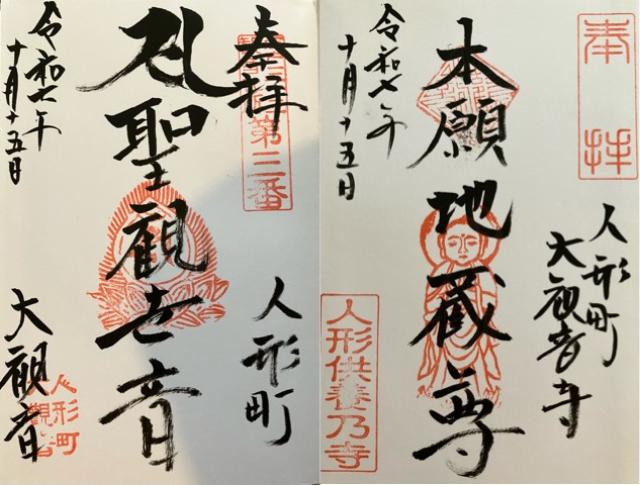 奉拝
人形町
大観音寺
本願地蔵尊
令和七年
十月十五日
人形供養乃寺
奉拝
第三番
人形町
聖觀世音
令和七年
十月十五日
大観音
人形町